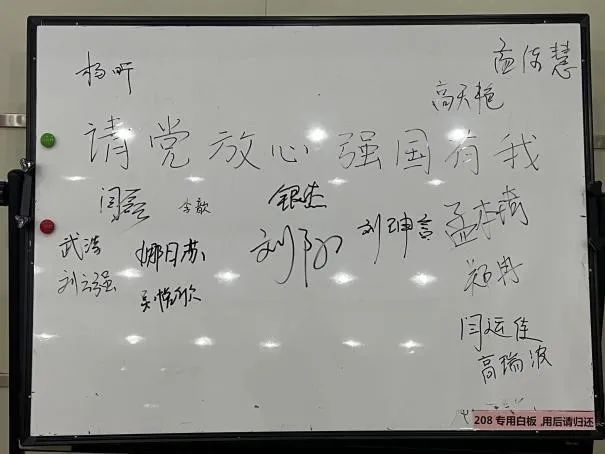 杨昕
孟保慧
高天艳
请党放心 强国有我
李歆
银杰
孟木琦
武浩
娜日苏
刘阳
刘珅言
刘立强
吴悦欣
郑丹
闫运佳
高瑞波
208 专用白板,用后请归还